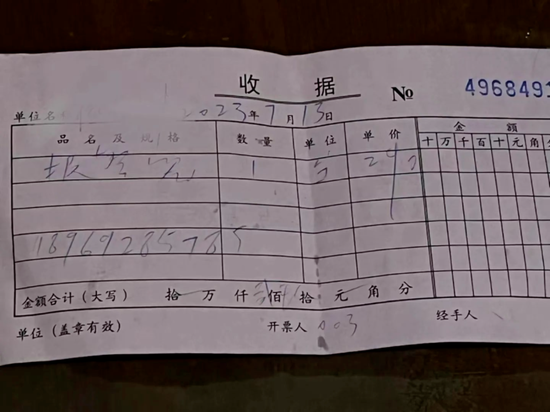 收据
№ 4968491
单位名 2023年7月13日
品名及规格 数量 单位 单价 金额
十万千百十元角分
1 台
18969285785
金额合计（大写） 拾 万 仟 佰 拾 元 角 分
单位（盖章有效） 开票人 003 经手人